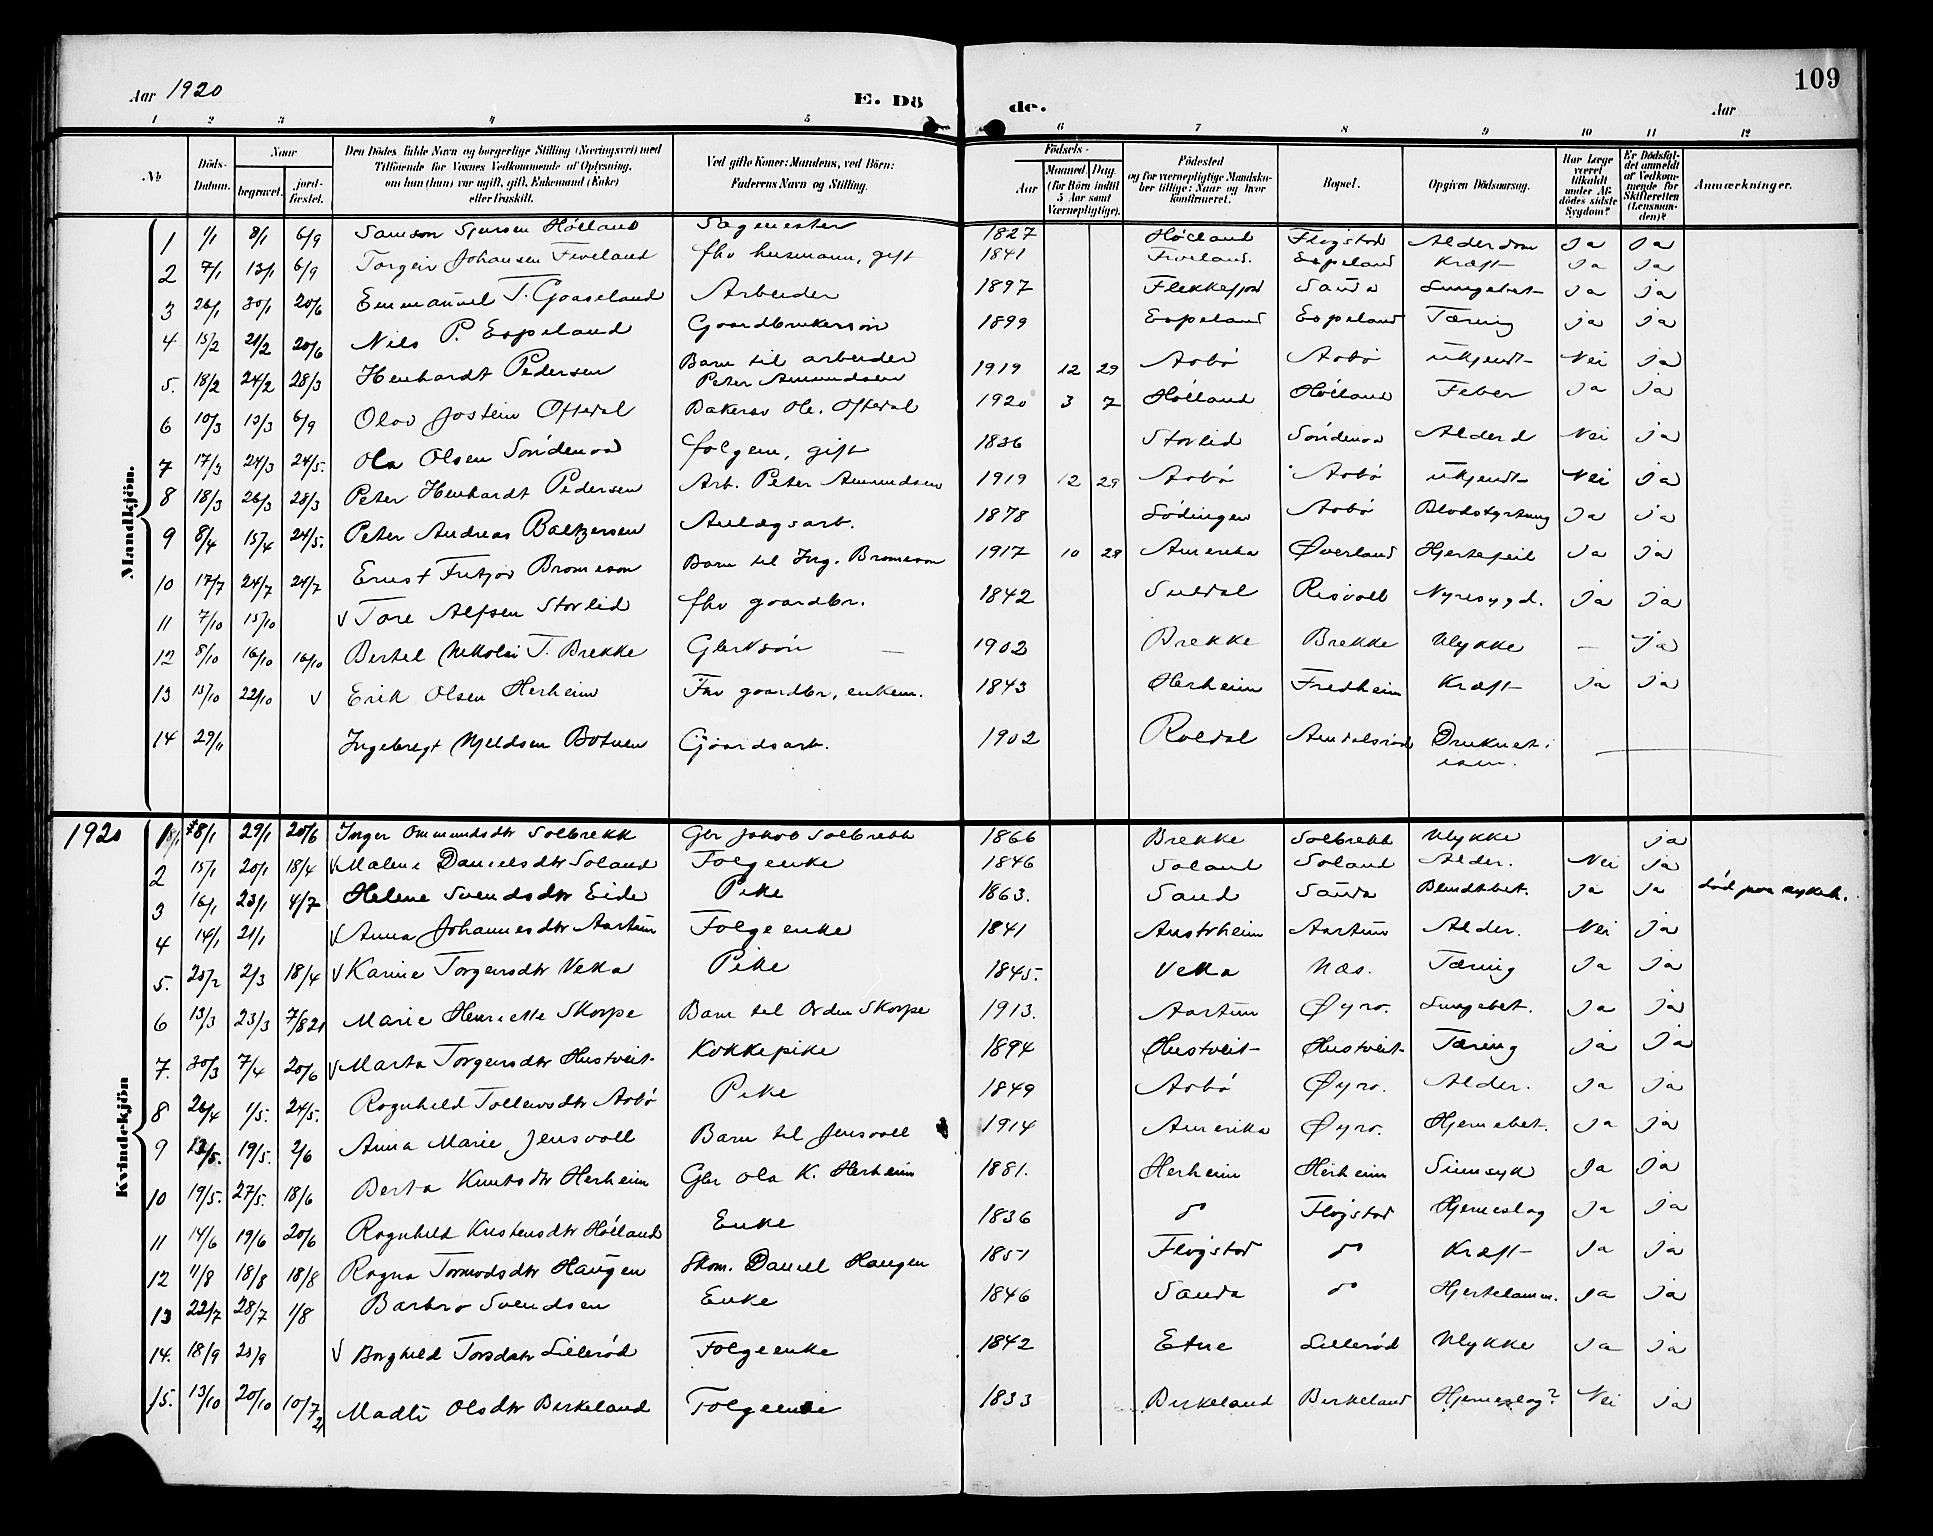 109
Aar 1920
E. Dö
de.
Aar
1 2 3 4 5 6 7 8 9 10 11 12
No.
Döds-Datum.
Naar
begravet.
jord-fæstet.
Den Dödes fulde Navn og borgerlige Stilling (Næringsvei) med
Tilföiende for Voxnes Vedkommende af Oplysning,
om han (hun) var ugift, gift, Enkemand (Enke)
eller fraskilt.
Ved gifte Koner: Mandens, ved Börn:
Faderens Navn og Stilling.
Födsels-
Aar
Maaned. Dag.
(for Börn indtil
5 Aar samt
Værnepligtige).
Födested
og for værnepligtige Mandskaber tillige: Naar og hvor
konfirmeret.
Bopæl.
Opgiven Dödsaarsag.
Har Læge været tilkaldt under Afdödes sidste Sygdom?
Er Dödsfaldet anmeldt af Vedkommende for Skifteretten (Lensmanden)?
Anmærkninger.
Mandkjön.
1 1/1 8/1 6/9 Samson Sjursen Hölland Sagmester 1827 Hölland Flogstad Alderdom Ja Ja
2 7/1 13/1 6/9 Torgeir Johansen Fiveland fhv husmann, gift 1841 Fiveland. Espeland Kræft Ja Ja
3 26/1 30/1 20/6 Emmanuel T. Gaaseland Arbeider 1897 Flekkefjord Sauda Lungebet Ja Ja
4 15/2 21/2 20/6 Nils P. Espeland Gaardbrukersön 1899 Espeland Espeland Tæring Ja Ja
5. 18/2 24/2 28/3 Henhardt Pedersen Barn til arbeider Peter Amundsen 1919 12 29 Aabö Aabö ukjendt Nei Ja
6 10/3 13/3 6/9 Olav Jostein Oftedal Bakersv Ole. Oftedal 1920 3 7 Hölland Hölland Feber Ja Ja
7 17/3 24/3 24/5. Ola Olsen Söndenaa folgem, gift 1836 Storlid Söndenaa Alderd Nei Ja
8 18/3 26/3 28/3 Peter Henhardt Pedersen Arb. Peter Amundsen 1919 12 29 Aabö Aabö ukjendt Nei Ja
9 8/4 15/4 24/5. Peter Andreas Baltzersen Anlægsarb. 1878 Lödingen Aabö Blodstyrtning Ja Ja
10 17/7 24/7 24/7 Ernst Fritjov Bromeson Barn til Ing. Bromeson 1917 10 28 Amerika Øverland Hjertefeil Ja Ja
11 7/10 15/10 v Tore Alfsen Storlid fhv gaardbr. 1842 Suldal Risvoll Nyresygd. Ja Ja
12 8/10 16/10 16/10 Bertel Nikolai T. Brekke Gbrksön — 1902 Brekke Brekke Ulykke — Ja
13 15/10 22/10 v Erik Olsen Herheim Fhv gaardbr, enkem. 1843 Herheim Fredheim Kræft Ja Ja
14 29/11 Ingebregt Kjeldsen Botnen Gaardsarb. 1902 Roldal Amdalsrød Druknet i isen.
1920
Kvindekjön
1 18/1 29/1 20/6 Inger Ommundsdtr Solbrekk Gbr Jakob Solbrekk 1866 Brekke Solbrekk Ulykke Ja
2 15/1 20/1 18/4 v Malene Danielsdtr Soland Folgeenke 1846 Soland Soland Alder. Nei Ja
3 16/1 23/1 4/7 Helene Svendsdtr Eide Pike 1863. Sand Sauda Blindtbet. Ja Ja död paa sykeh.
4 14/1 21/1 v Anna Johannesdtr Aartun Folgeenke 1841 Austrheim Aartun Alder. Nei Ja
5. 20/2 2/3 18/4 v Karine Torgersdtr Vetla Pike 1845. Vetla Næs. Tæring Ja Ja
6 13/3 23/3 7/8 21 Marie Henriette Skorpe Barn til Orden Skorpe 1913. Aartun Øyro. Lungebet. Ja Ja
7. 30/3 7/4 20/6 v Marta Torgersdtr Hustveit Kokkepike 1894 Hustveit Hustveit Tæring Ja Ja
8 26/4 1/5. 24/5. Ragnhild Tollevsdtr Aabö Pike 1849 Aabö Øyro. Alder. Ja Ja
9 12/5. 19/5. 2/6 Anna Marie Jensvoll Barn til Jensvoll 1914 Amerika Øyro. Hjernebet. Ja Ja
10 19/5. 27/5. 18/6 Berta Knutsdtr Herheim Gbr Ola K. Herheim 1881. Herheim Herheim Sinnsyk Ja Ja
11 14/6 19/6 20/6 Ragnhild Kristensdtr Hölland Enke 1836 do Flogstad Hjerneslag Ja Ja
12 11/8 18/8 18/8 Ragna Tormodsdtr Haugen Skom. Daniel Haugen 1851 Flogstad do Kræft Ja Ja
13 22/7 28/7 1/8 Barbro Svendsen Enke 1846 Sauda do Hjertelamm. Ja Ja
14. 18/9 25/9 v Borghild Torsdatr Lillerød Folgeenke 1842 Etne Lillerød Ulykke Ja Ja
15. 13/10 20/10 10/7 21 Madli Olsdtr Birkeland Folgeenke 1833 Birkeland Birkeland Hjerneslag? Nei Ja